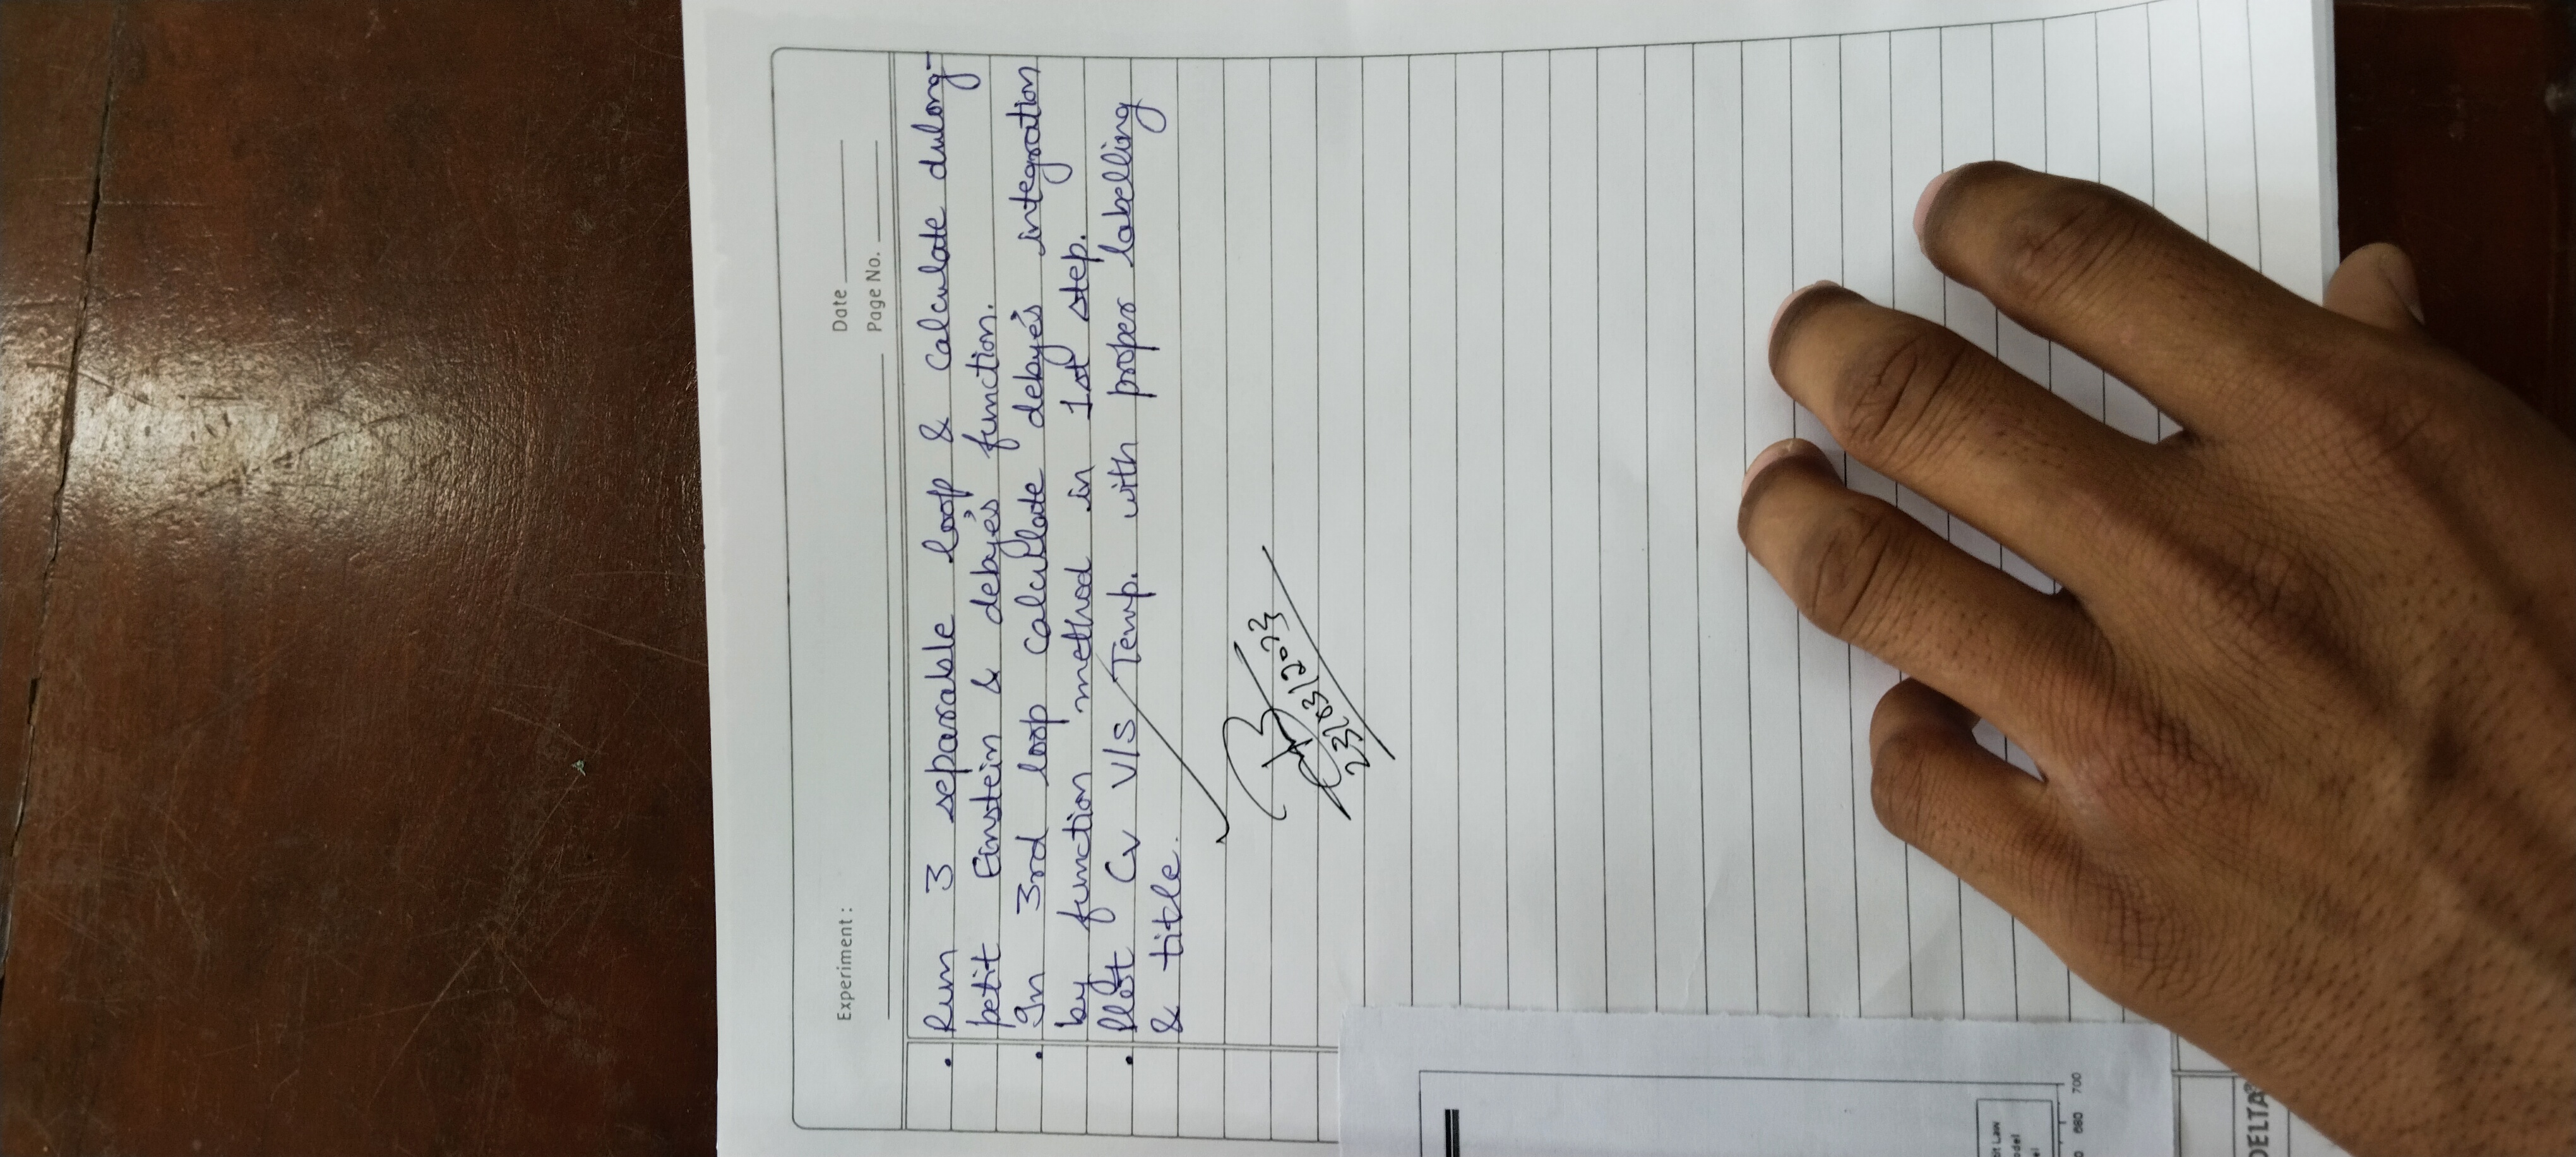 Experiment :
Date
Page No.
. Run 3 separable loop & Calculate dulong-
petit Einstein & debye's function.
. In 3rd loop Calculate debye's integration
by function method in 1st step.
. Plot Cv V/S Temp. with proper labelling
& title.
23/03/2023
it Law
odel
el
0 680 700
DELTA